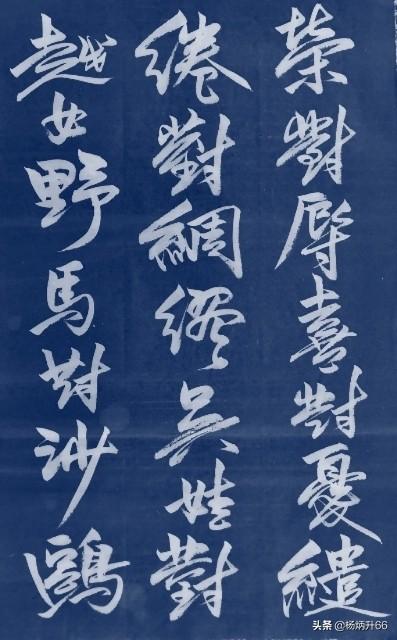 榮對辱喜對憂繾
綣對綢繆吳娃對
越女野馬對沙鷗
头条 @杨炳升66